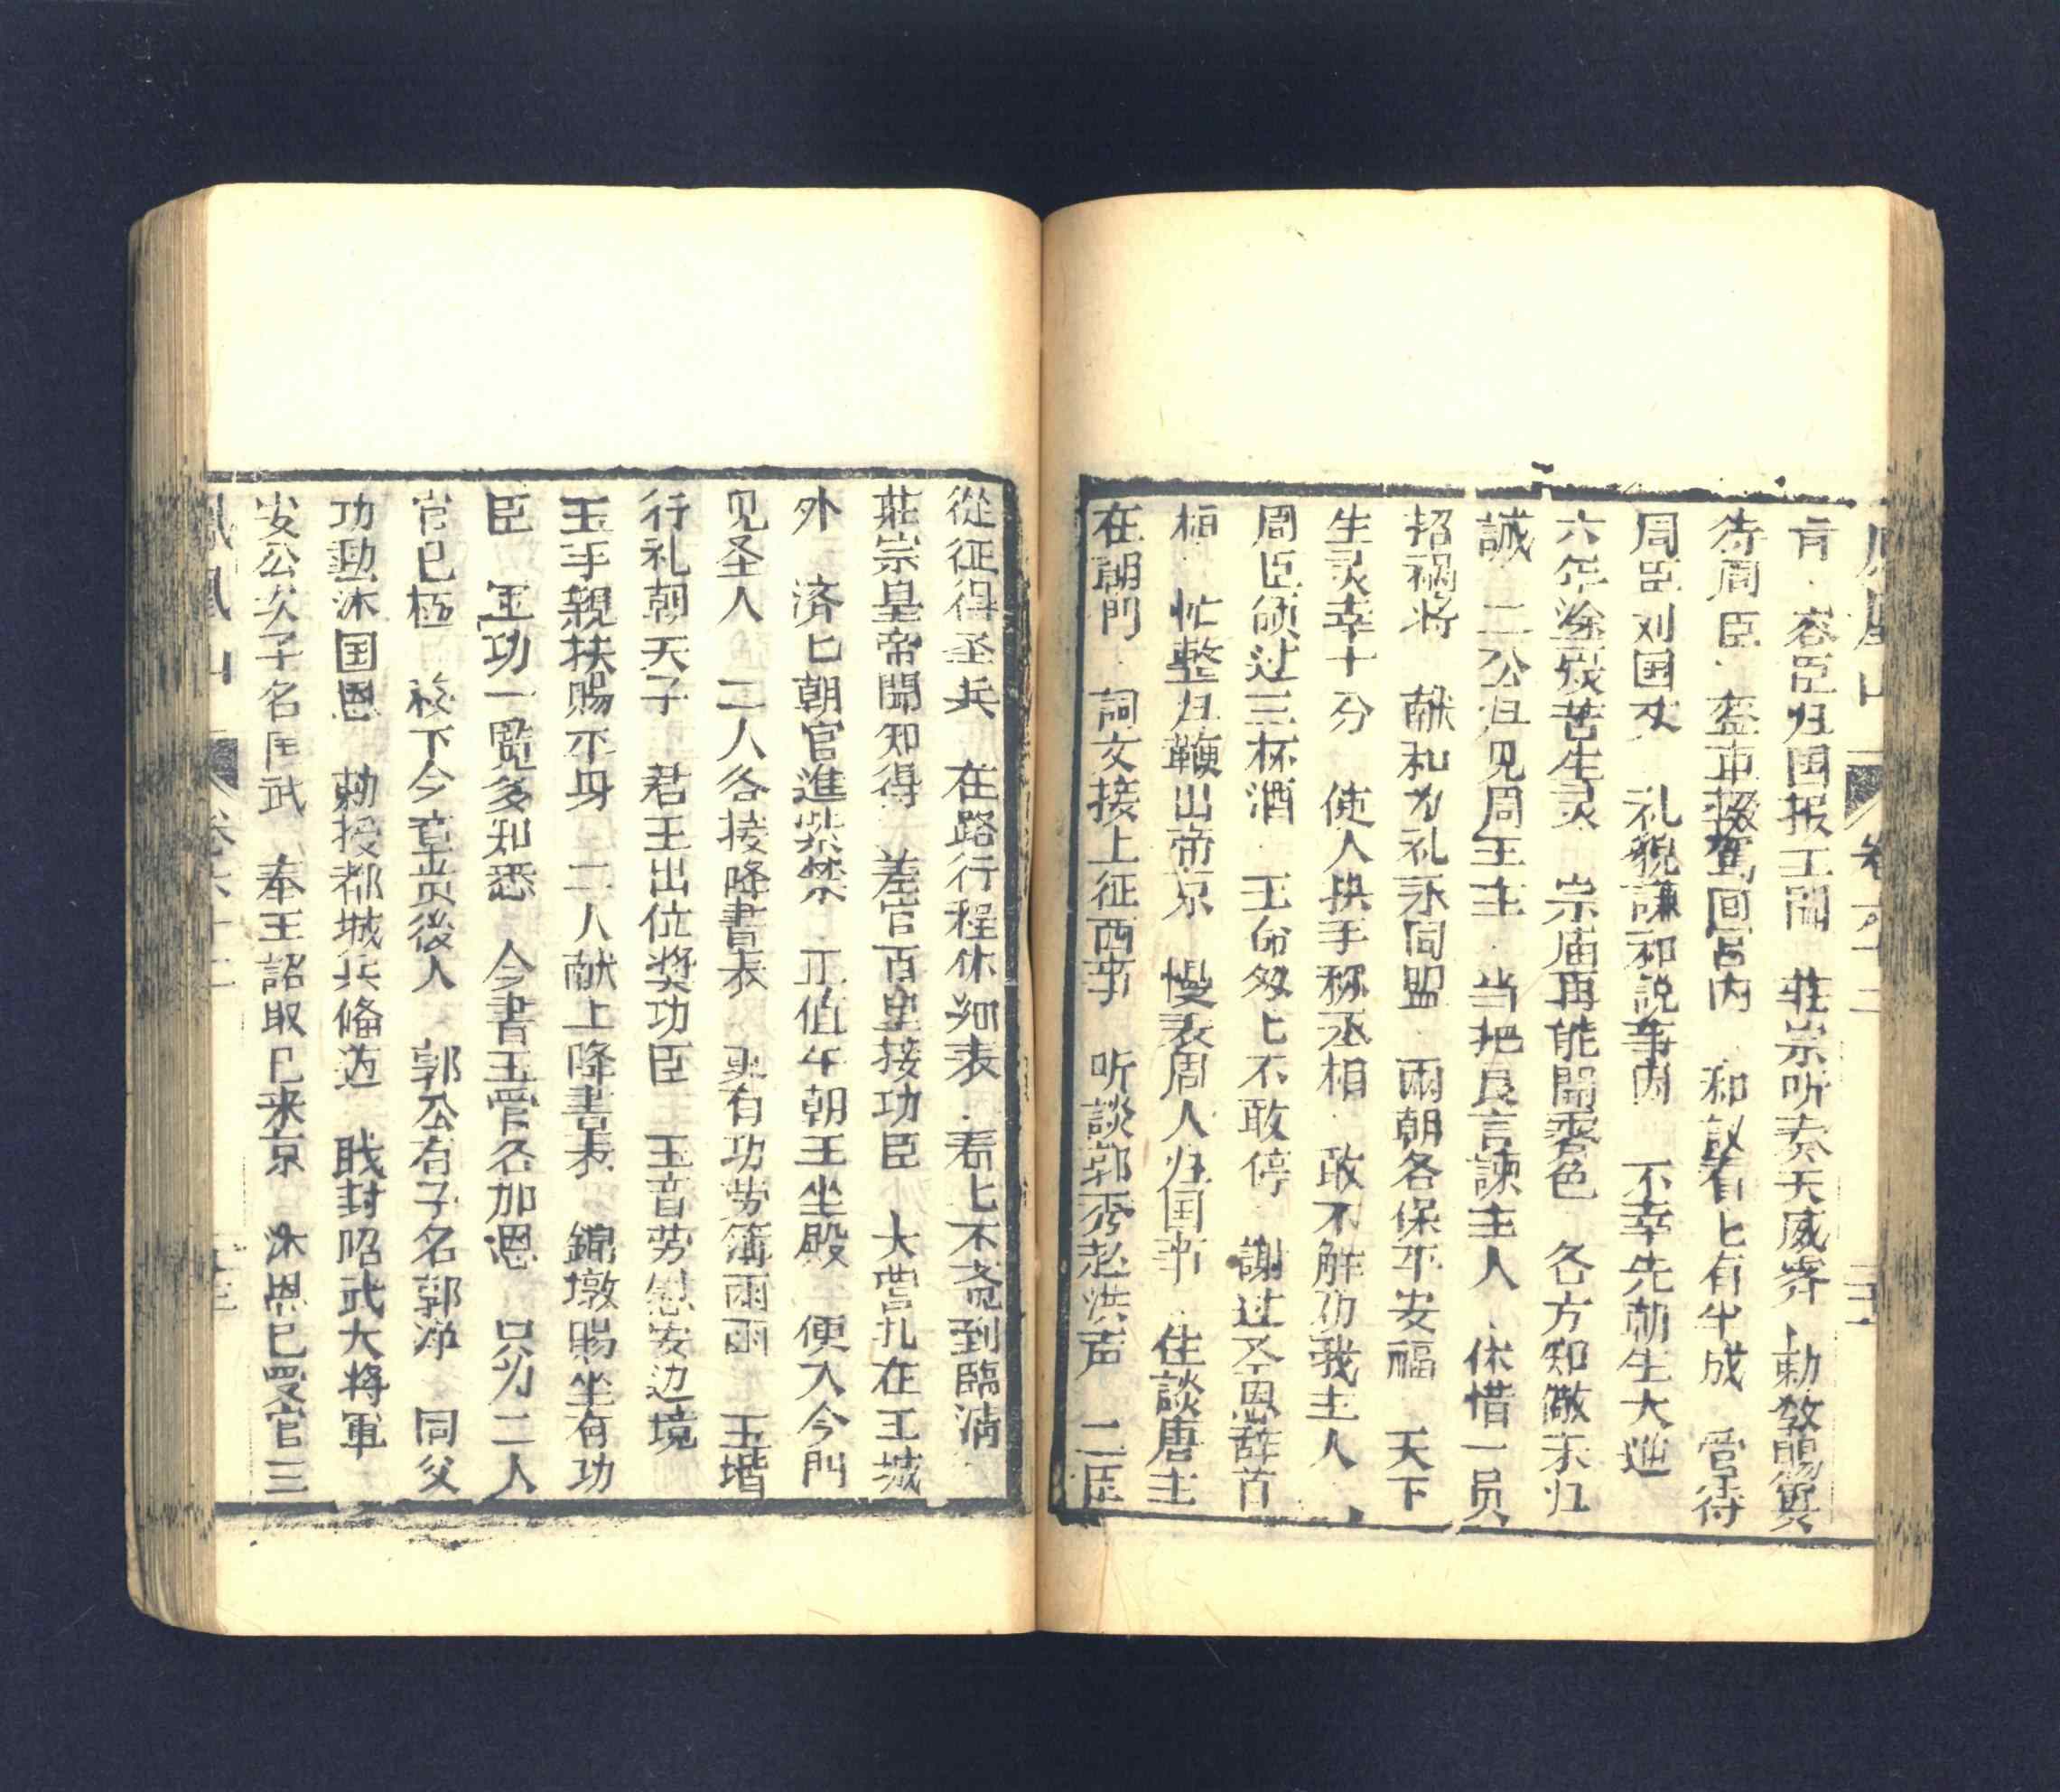 鳳凰山 卷六十二
肯 容臣归国报王聞 莊宗听奏天威霽 勅教賜宴
待周臣 盔車輟駕回宫内 和議看匕有半成 管待
周臣刘国丈 礼貌謙和說事因 不幸先朝生大逆
六年塗炭苦生灵 宗庙再能開秀色 各方知儆来归
誠 二公归见周王主 当把良言諫主人 休惜一员
招禍将 献和为礼永同盟 兩朝各保平安福 天下
生灵幸十分 使人拱手称丞相 敢不解功我主人
周臣领过三杯酒 王命匆匕不敢停 謝过圣恩辞首
相 忙整归鞭出帝京 慢表周人归国事 住談唐主
在朝門 詞文接上征西事 听談郭秀起洪声 二臣
從征得圣兵 在路行程休細表 看匕不斋到臨淸
莊宗皇帝聞知得 差官百里接功臣 大营扎在王城
外 済匕朝官進紫禁 正值午朝王坐殿 便入今門
见圣人 二人各接降書表 更有功劳簿兩雨 玉堦
行礼朝天子 君王出位奖功臣 玉音劳慰安边境
玉手親扶賜平身 二人献上降書表 錦墩賜坐有功
臣 王功一覧多知悉 今書玉管各加恩 只为二人
官已極 移下今章贵後人 郭公有子名郭净 同父
功勳沐国恩 勅授都城兵偹道 戝封昭武大将軍
安公次子名匡武 奉王詔取已来京 沐恩已受官三
鳳凰山 卷六十二